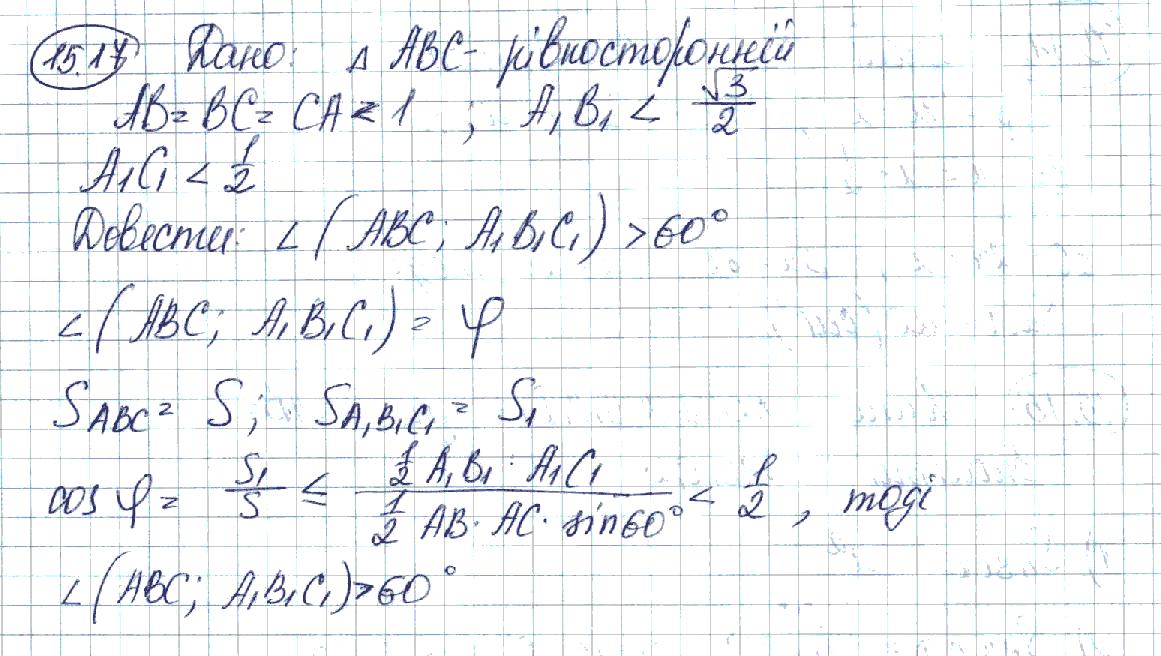 15.17 Дано: △ ABC - рівносторонній
AB = BC = CA = 1 ; A₁B₁ < √3/2
A₁C₁ < 1/2
Довести: ∠(ABC; A₁B₁C₁) > 60°
∠(ABC; A₁B₁C₁) = φ
S_ABC = S; S_A₁B₁C₁ = S₁
cos φ = S₁/S ≤ (1/2 A₁B₁ · A₁C₁)/(1/2 AB · AC · sin60°) < 1/2, тоді
∠(ABC; A₁B₁C₁) > 60°